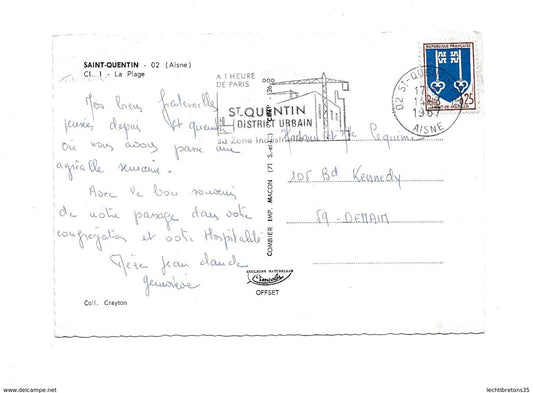 SAINT-QUENTIN - 02 (Aisne)
Cl. 1 - La Plage
Nos biens fraternelles
pensées depuis St quentin
où nous avons passé une
agréable semaine.
Avec le bon souvenir
de notre passage dans votre
congrégation et votre Hospitalité
Jean Claude
Geneviève
Coll. Crayton
A 1 HEURE
DE PARIS
ST QUENTIN
DISTRICT URBAIN
sa Zone Indust
REPUBLIQUE FRANCAISE
0,25
02 ST-QUENTIN
17
1967
AISNE
COMBIER IMP. MACON (71 S.-et-L.)
COULEURS NATURELLES
Cimcolor
OFFSET
105 Bd Kennedy
59 - DENAIN
https://www.delcampe.net
lechtibretons35